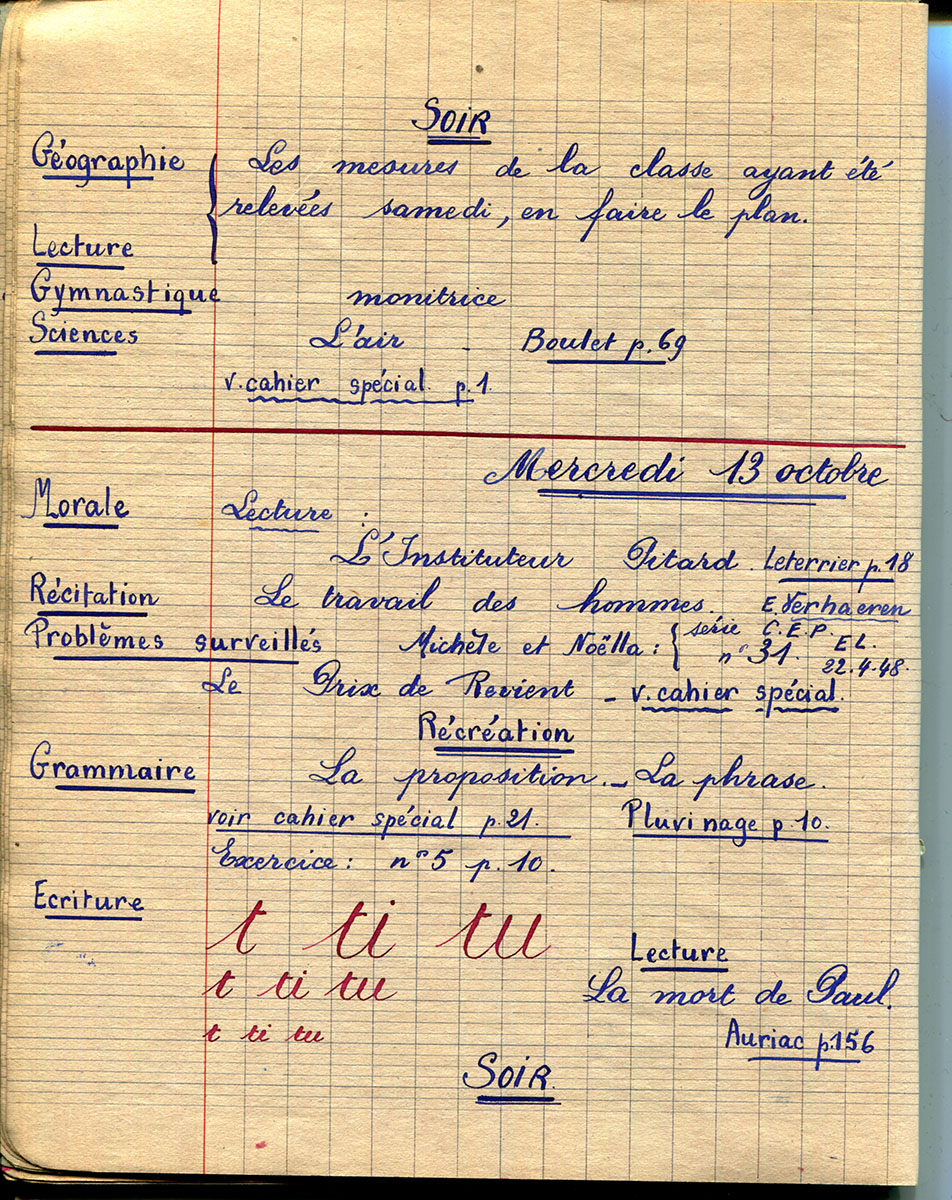 SOIR
Géographie Les mesures de la classe ayant été
relevées samedi, en faire le plan.
Lecture
Gymnastique monitrice
Sciences L'air - Boulet p.69
v. cahier spécial p.1.
Mercredi 13 octobre
Morale Lecture :
L'Instituteur Pitard. Leterrier p.18
Récitation Le travail des hommes. E. Verhaeren
Problèmes surveillés Michèle et Noëlla : série C.E.P. EL.
n° 31. 22.4.48.
Le Prix de Revient - v. cahier spécial.
Récréation
Grammaire La proposition. - La phrase.
voir cahier spécial p.21. Pluvinage p.10.
Exercice : n° 5 p.10.
Ecriture t ti tu
Lecture
t ti tu La mort de Paul.
t ti tu Auriac p.156
SOIR.